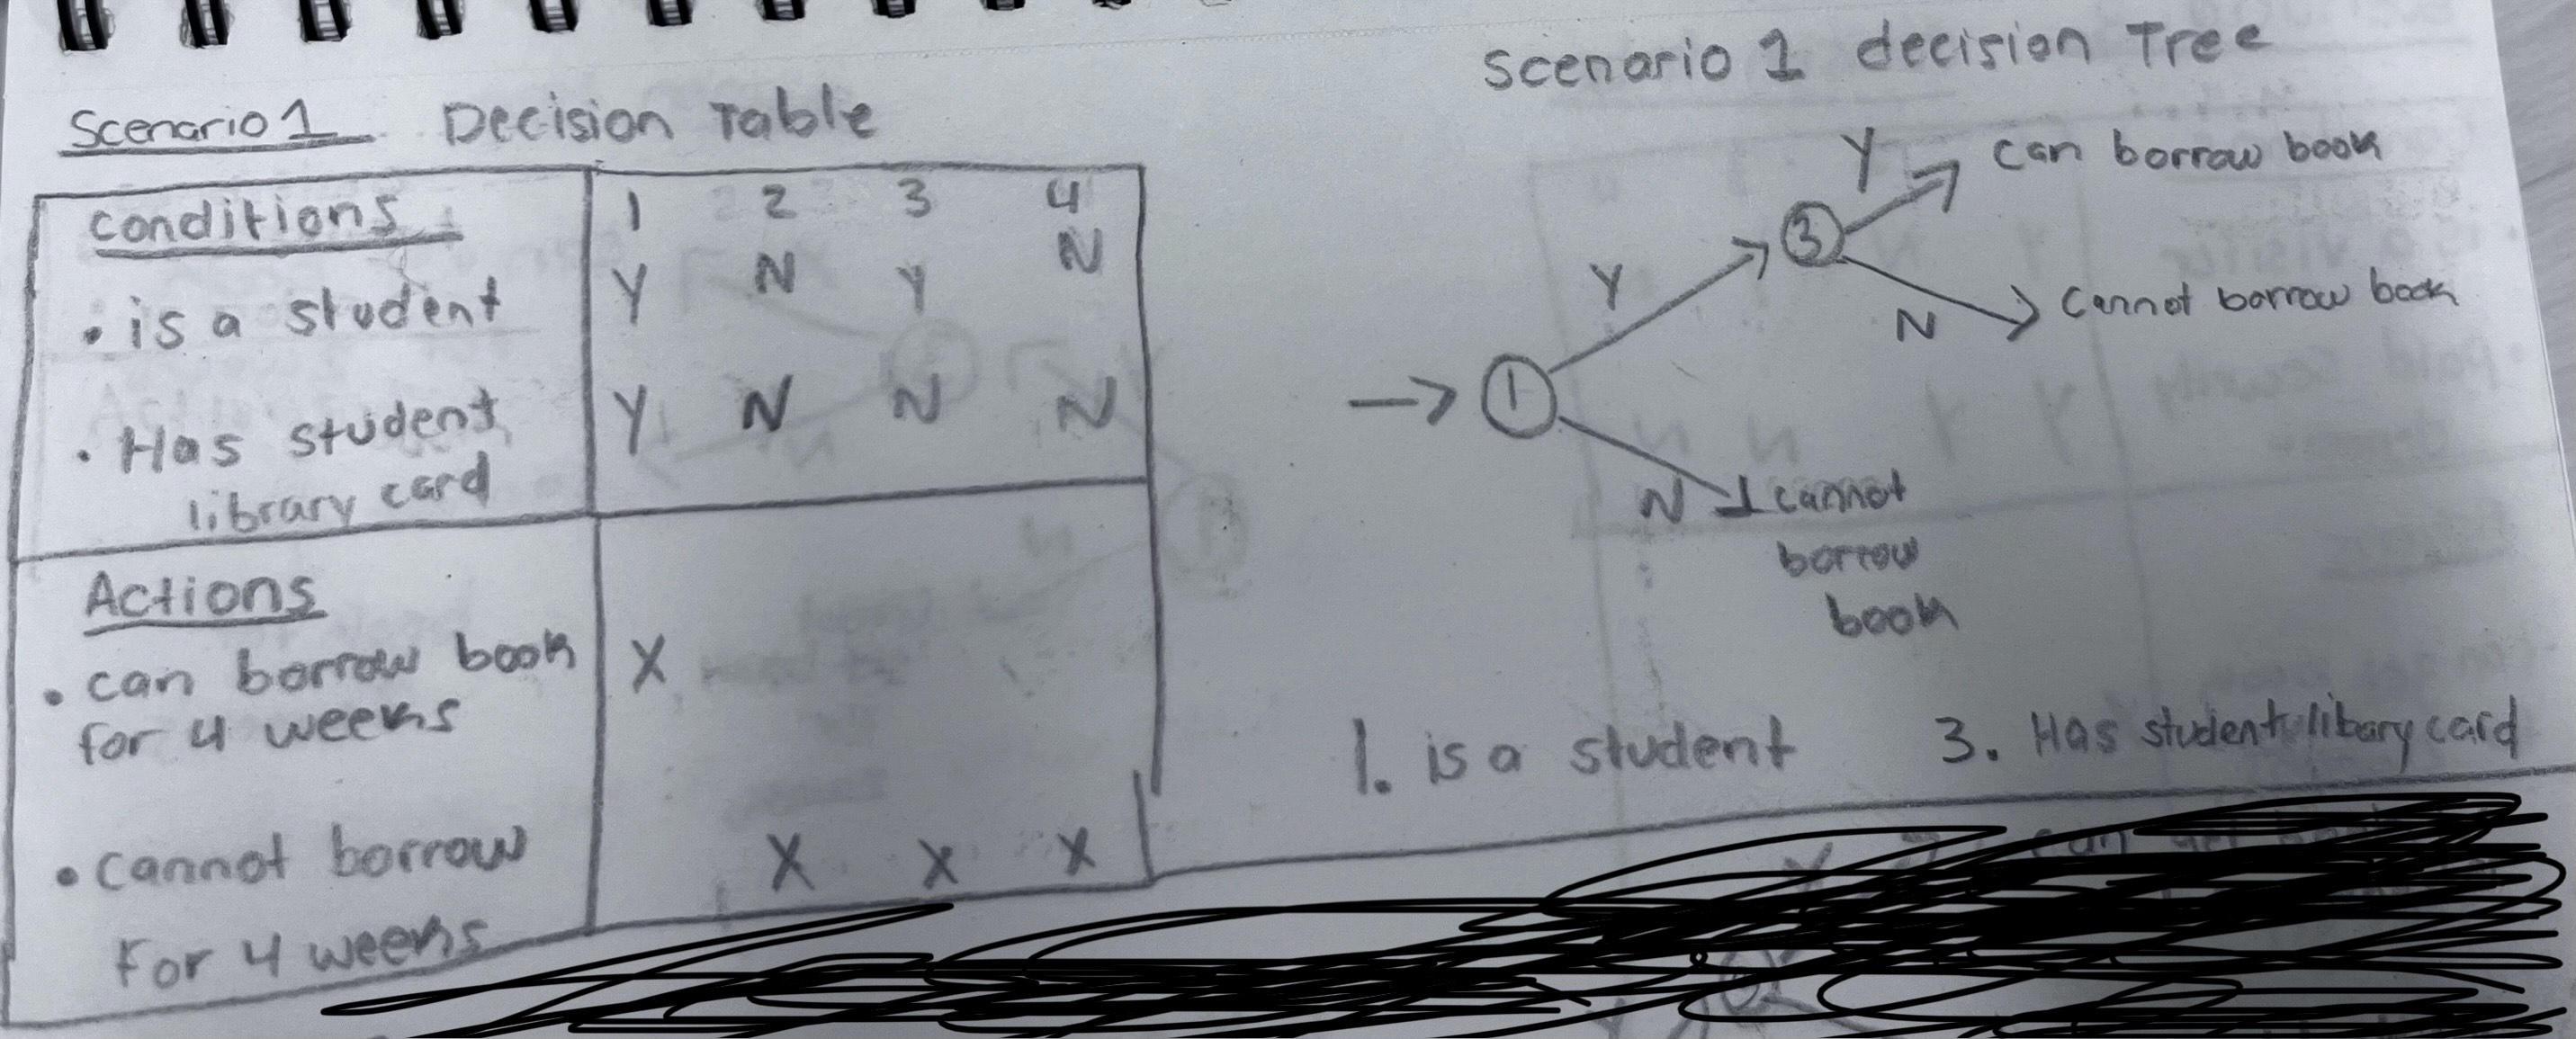 Scenario 1 Decision Table
conditions 1 2 3 4
• is a student Y N Y N
• Has student Y N N N
library card
Actions
• can borrow book X
for 4 weeks
• cannot borrow X X X
for 4 weeks
Scenario 1 decision Tree
Y can borrow book
3
Y
N cannot borrow book
→ 1
N cannot
borrow
book
1. is a student 3. Has student libary card